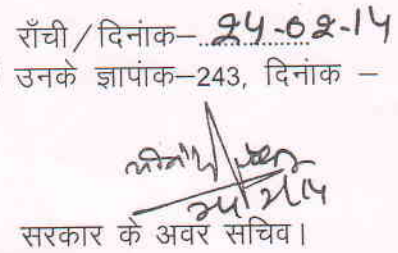 राँची / दिनांक– 24-02-14
उनके ज्ञापांक–243, दिनांक –
24/2/14
सरकार के अवर सचिव।